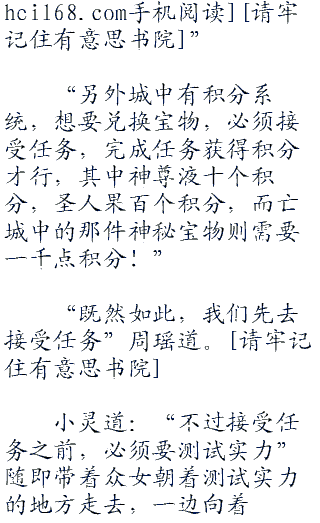 hcil68.com手机阅读][请牢
记住有意思书院]”
“另外城中有积分系
统，想要兑换宝物，必须接
受任务，完成任务获得积分
才行，其中神尊液十个积
分，圣人果百个积分，而亡
城中的那件神秘宝物则需要
一千点积分！”
“既然如此，我们先去
接受任务”周瑶道。[请牢记
住有意思书院]
小灵道：“不过接受任
务之前，必须要测试实力”
随即带着众女朝着测试实力
的地方走去，一边向着